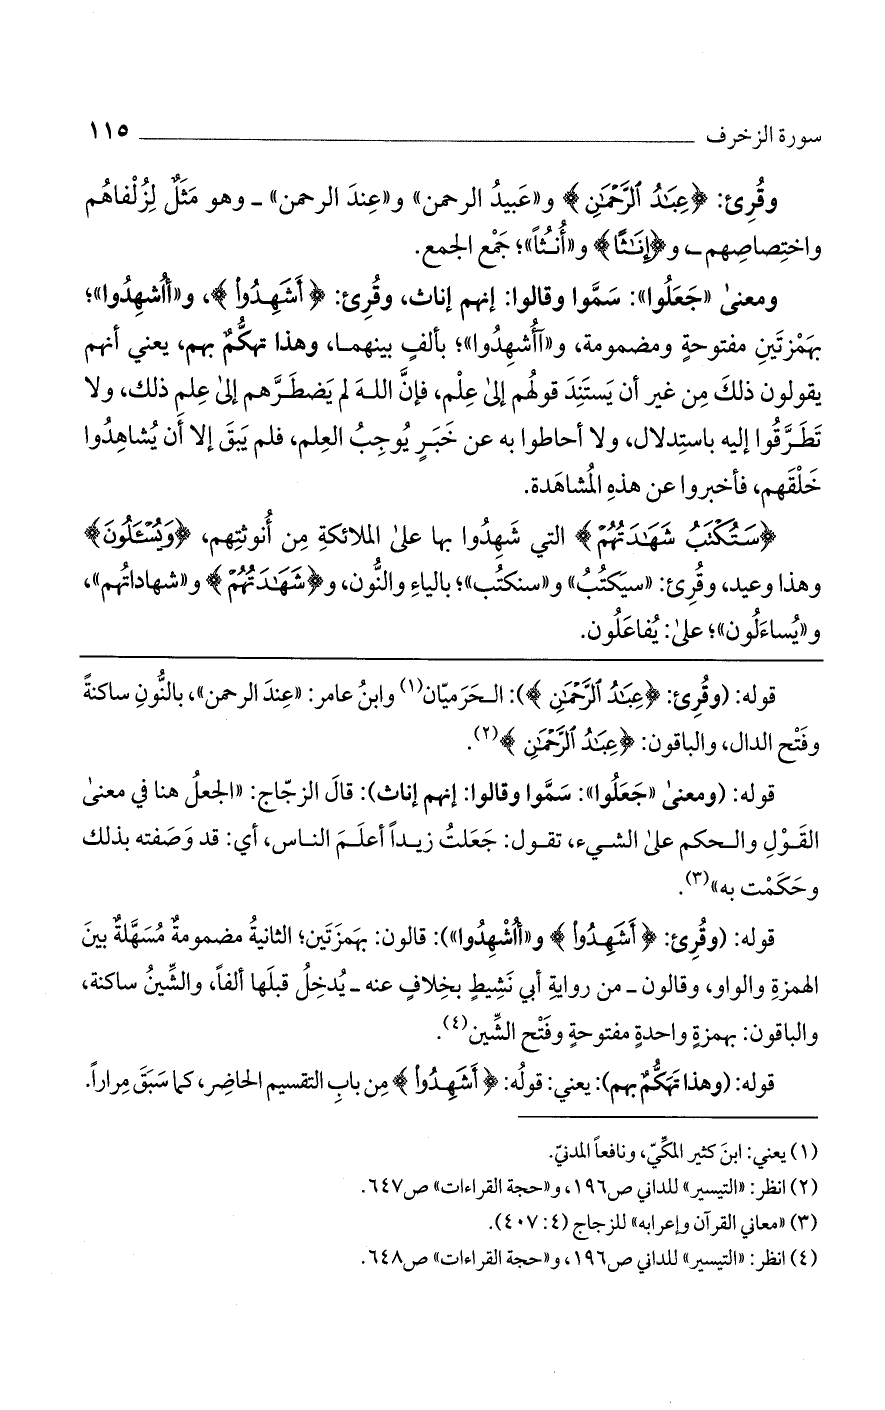 سورة الزخرف ــــــــــــــــــــ ١١٥
وقُرِئ: ﴿عِبَٰدُ ٱلرَّحْمَٰنِ﴾ و«عَبيدُ الرحمن» و«عِندَ الرحمن» ـ وهو مَثَلٌ لِزُلْفاهُم
واختِصاصِهم ـ، و﴿إِنَٰثًا﴾ و«أُنُثاً»؛ جَمْع الجمع.
ومعنىٰ «جَعَلُوا»: سَمَّوا وقالوا: إنهم إناث، وقُرِئ: ﴿أَشَهِدُوا۟﴾، و«أَأُشهِدُوا»؛
بهَمْزتَينِ مفتوحةٍ ومضمومة، و«آأُشهِدُوا»؛ بألفٍ بينهما، وهذا تهكُّمٌ بهم، يعني أنهم
يقولون ذلكَ مِن غير أن يَستَنِدَ قولُهم إلىٰ عِلْم، فإنَّ اللهَ لم يَضطَرَّهم إلىٰ عِلمِ ذلك، ولا
تَطَرَّقُوا إليه باستِدلال، ولا أحاطوا به عن خَبَرٍ يُوجِبُ العِلم، فلم يَبقَ إلا أن يُشاهِدُوا
خَلْقَهم، فأخبروا عن هذهِ المُشاهَدة.
﴿سَتُكْتَبُ شَهَٰدَتُهُمْ﴾ التي شَهِدُوا بها علىٰ الملائكةِ مِن أُنوثتِهم، ﴿وَيُسْـَٔلُونَ﴾
وهذا وعيد، وقُرِئ: «سيَكتُبُ» و«سنكتُب»؛ بالياءِ والنُّون، و﴿شَهَٰدَتُهُمْ﴾ و«شهاداتُهم»،
و«يُساءَلُون»؛ علىٰ: يُفاعَلُون.
قوله: (وقُرِئ: ﴿عِبَٰدُ ٱلرَّحْمَٰنِ﴾): الحَرَميّان(١) وابنُ عامر: «عِندَ الرحمن»، بالنُّونِ ساكنةً
وفَتْح الدال، والباقون: ﴿عِبَٰدُ ٱلرَّحْمَٰنِ﴾(٢).
قوله: (ومعنىٰ «جَعَلُوا»: سَمَّوا وقالوا: إنهم إناث): قالَ الزجّاج: «الجعلُ هنا في معنىٰ
القَوْلِ والحكم علىٰ الشيء، تقول: جَعَلتُ زيداً أعلَمَ الناس، أي: قد وَصَفته بذلك
وحَكَمْت به»(٣).
قوله: (وقُرِئ: ﴿أَشَهِدُوا۟﴾ و«أَأُشْهِدُوا»): قالون: بهَمزَتَين؛ الثانيةُ مضمومةٌ مُسَهَّلةٌ بينَ
الهمزةِ والواو، وقالون ـ من روايةِ أبي نَشِيطٍ بخِلافٍ عنه ـ يُدخِلُ قبلَها ألفاً، والشِّينُ ساكنة،
والباقون: بهمزةٍ واحدةٍ مفتوحةٍ وفَتْح الشِّين(٤).
قوله: (وهذا تَهَكُّمٌ بهم): يعني: قولُه: ﴿أَشَهِدُوا۟﴾ مِن بابِ التقسيم الحاضِر، كما سَبَقَ مِراراً.
(١) يعني: ابنَ كثير المكّيّ، ونافعاً المدنيّ.
(٢) انظر: «التيسير» للداني ص١٩٦، و«حجة القراءات» ص٦٤٧.
(٣) «معاني القرآن وإعرابه» للزجاج (٤: ٤٠٧).
(٤) انظر: «التيسير» للداني ص١٩٦، و«حجة القراءات» ص٦٤٨.